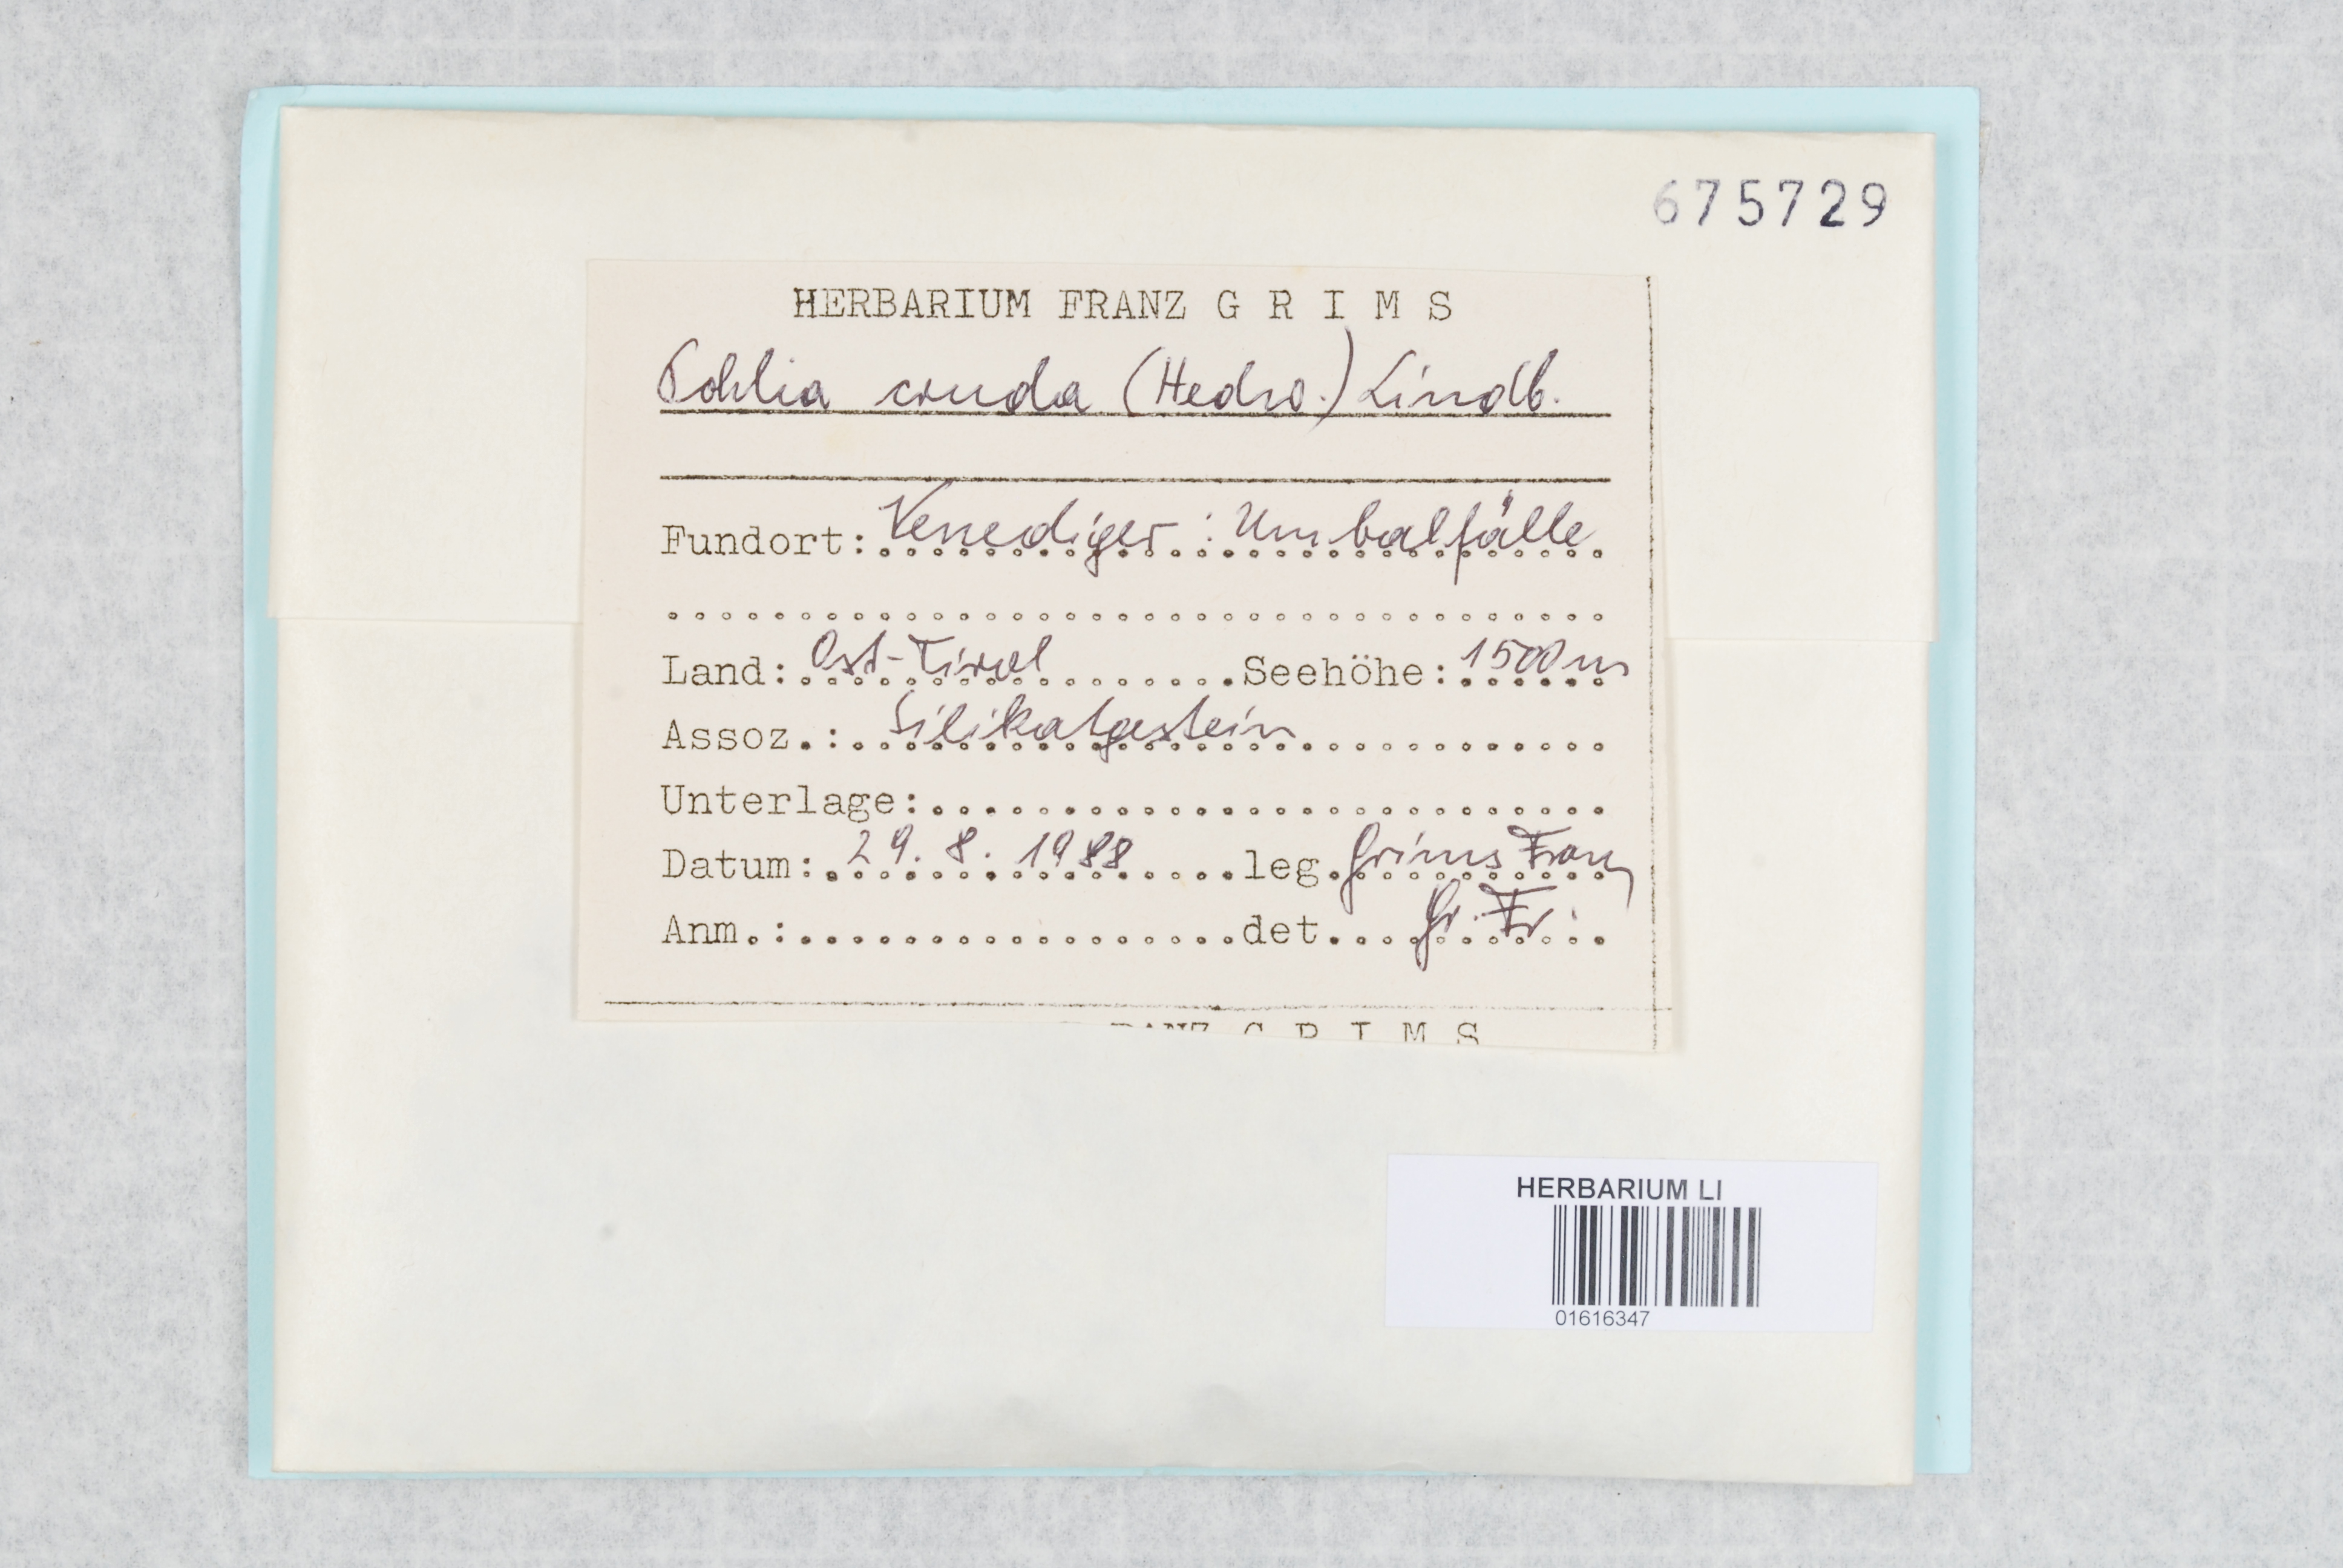 675729
HERBARIUM FRANZ G R I M S
Pohlia cruda (Hedw.) Lindb.
Fundort: Venediger : Umbalfälle
Land: Ost-Tirol Seehöhe: 1500 m
Assoz.: Silikatgestein
Unterlage:
Datum: 29. 8. 1988 leg. Grims Franz
Anm.: det. Gr. Fr.
RANZ G R I M S
HERBARIUM LI
01616347